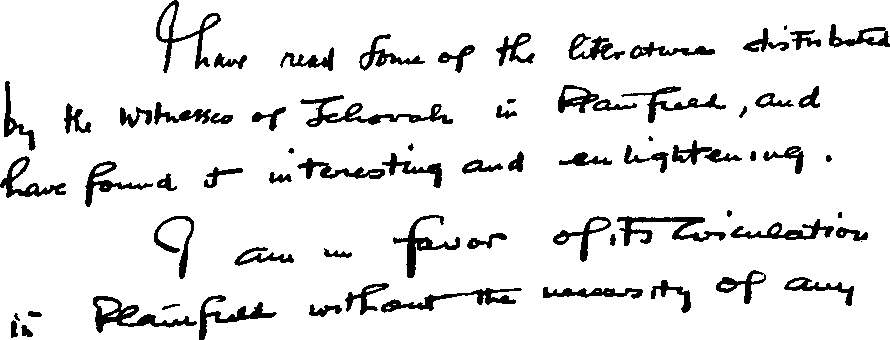 I have read some of the literature distributed
by the witnesses of Jehovah in Plainfield, and
have found it interesting and enlightening.
I am in favor of its circulation
in Plainfield without the necessity of any